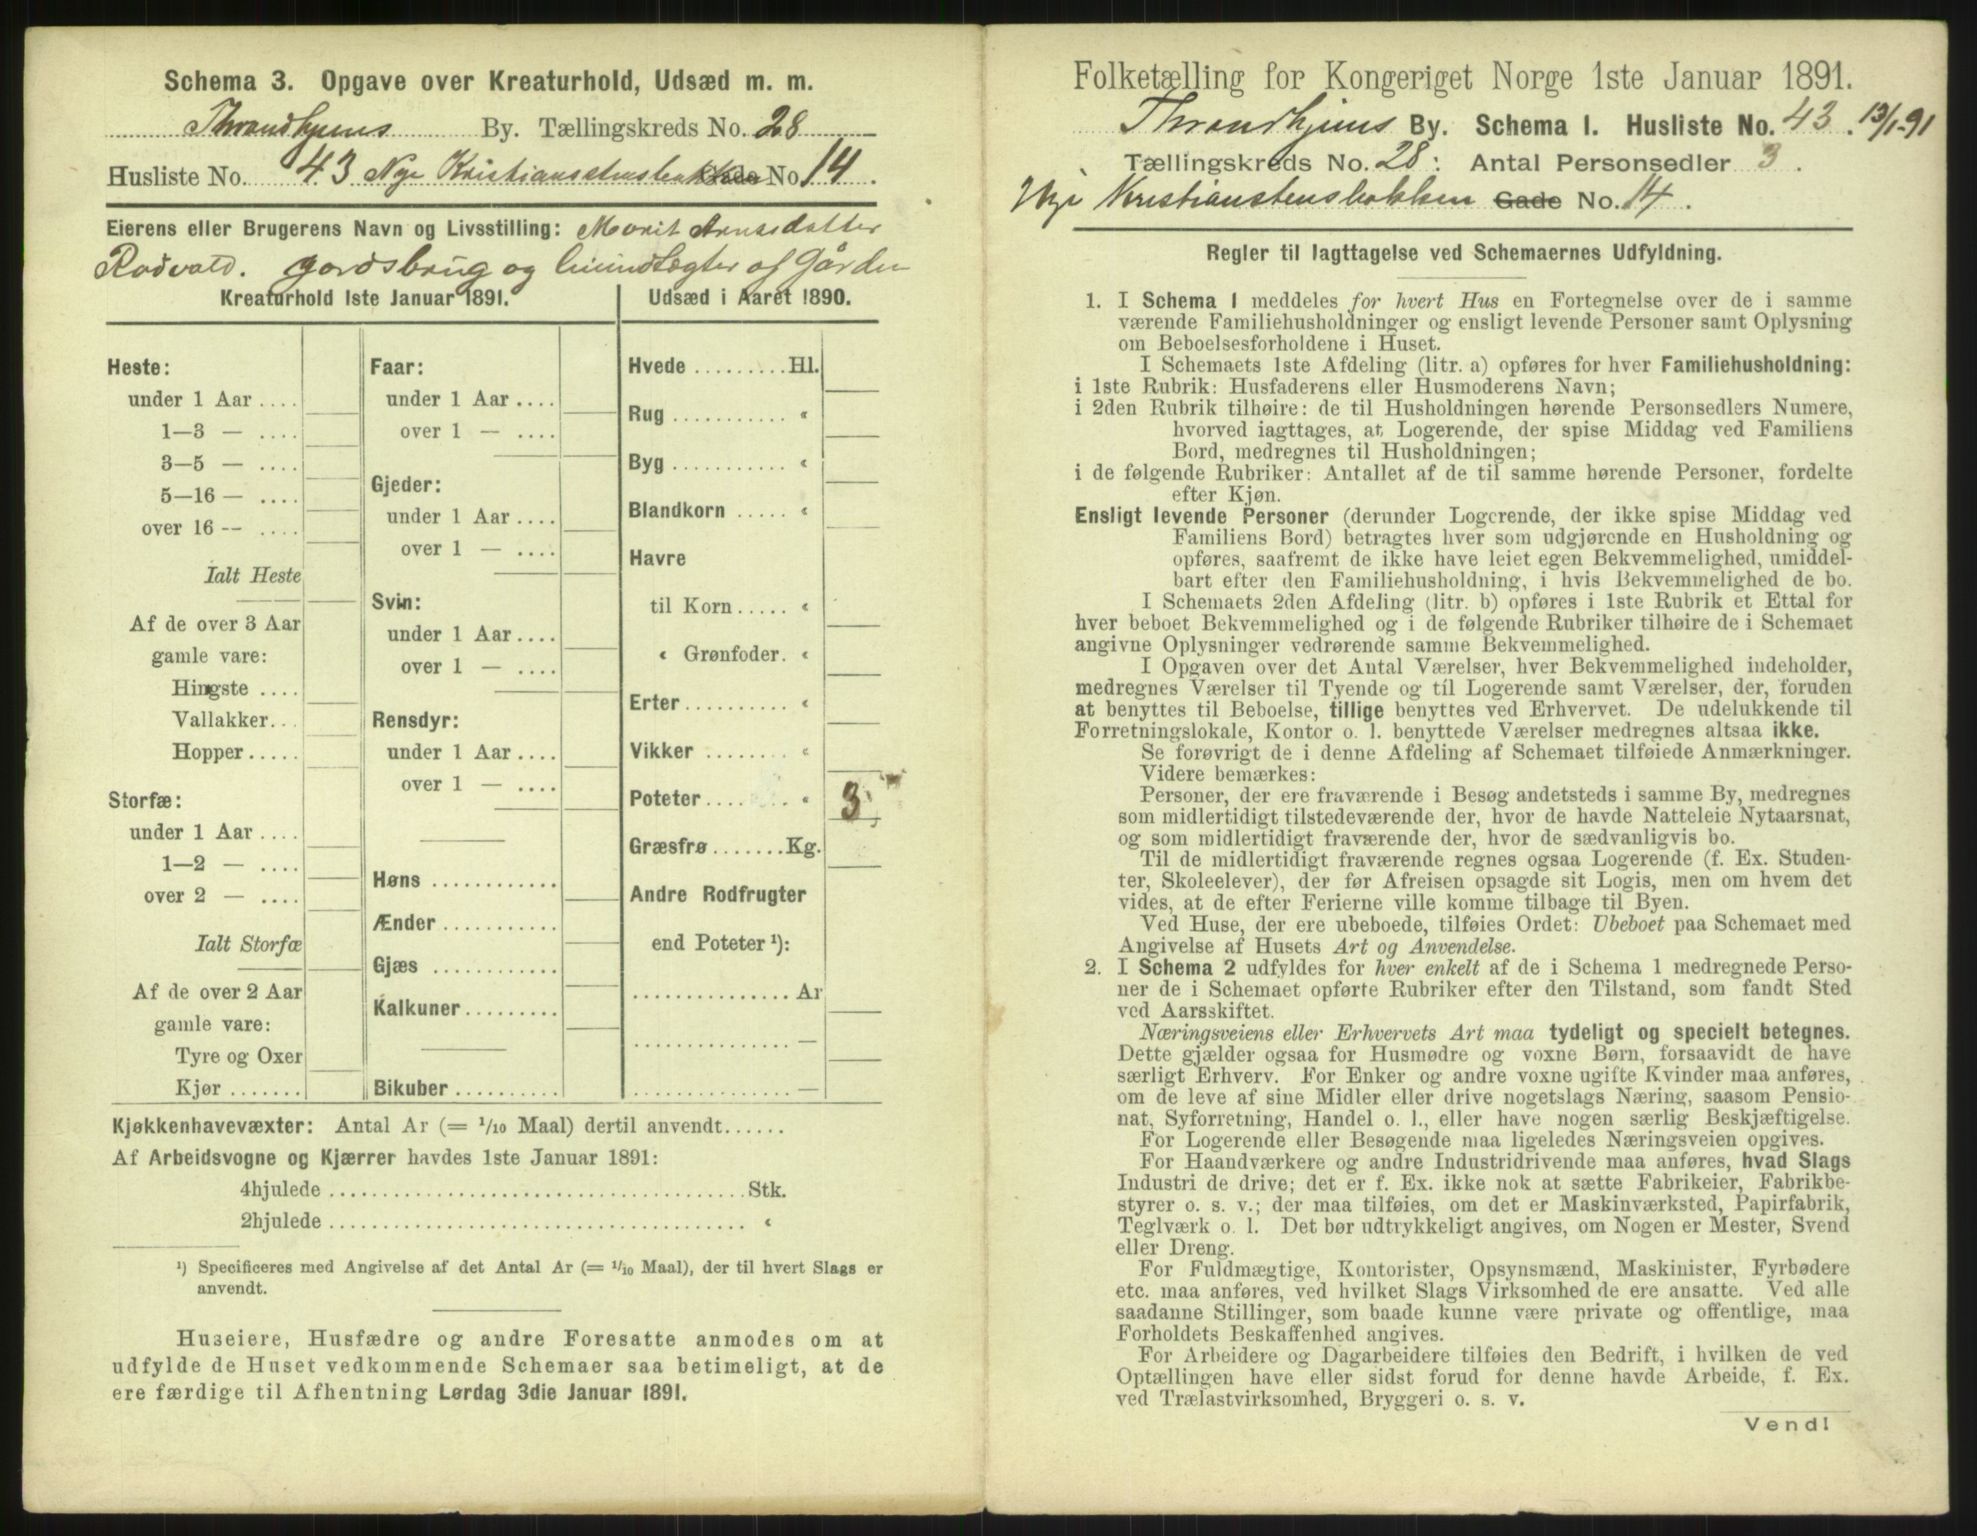 Schema 3. Opgave over Kreaturhold, Udsæd m. m.
Throndhjems By. Tællingskreds No. 28
Husliste No. 43 Nye Kristianstensbakken Gade No 14.
Eierens eller Brugerens Navn og Livsstilling: Marit Arntsdatter
Rødvald. gårdsbrug og Inundtægter af Gården
Kreaturhold 1ste Januar 1891.
Heste:
under 1 Aar ....
1—3 — ....
3—5 — ....
5—16 — ....
over 16 -- ....
Ialt Heste
Af de over 3 Aar
gamle vare:
Hingste ....
Vallakker...
Hopper.....
Storfæ:
under 1 Aar ....
1—2 — ....
over 2 — ....
Ialt Storfæ
Af de over 2 Aar
gamle vare:
Tyre og Oxer
Kjør.......
Faar:
under 1 Aar ....
over 1 — ....
Gjeder:
under 1 Aar ....
over 1 — ....
Svin:
under 1 Aar ....
over 1 — ....
Rensdyr:
under 1 Aar ....
over 1 — ....
Høns ............
Ænder...........
Gjæs ............
Kalkuner.........
Bikuber..........
Udsæd i Aaret 1890.
Hvede .........Hl.
Rug ........... «
Byg ........... «
Blandkorn ..... «
Havre
til Korn..... «
« Grønfoder. «
Erter.......... «
Vikker ........ «
Poteter........ « 3
Græsfrø.......Kg.
Andre Rodfrugter
end Poteter ¹):
............... Ar
............... —
............... —
Kjøkkenhavevæxter: Antal Ar (= 1/10 Maal) dertil anvendt......
Af Arbeidsvogne og Kjærrer havdes 1ste Januar 1891:
4hjulede ........................................Stk.
2hjulede ........................................ «
¹) Specificeres med Angivelse af det Antal Ar (= 1/10 Maal), der til hvert Slags er
anvendt.
Huseiere, Husfædre og andre Foresatte anmodes om at
udfylde de Huset vedkommende Schemaer saa betimeligt, at de
ere færdige til Afhentning Lørdag 3die Januar 1891.
Folketælling for Kongeriget Norge 1ste Januar 1891.
Throndhjems By. Schema I. Husliste No. 43. 13/1-91
Tællingskreds No. 28: Antal Personsedler 3.
Nye Kristianstensbakken Gade No. 14.
Regler til Iagttagelse ved Schemaernes Udfyldning.
1. I Schema I meddeles for hvert Hus en Fortegnelse over de i samme
værende Familiehusholdninger og ensligt levende Personer samt Oplysning
om Beboelsesforholdene i Huset.
I Schemaets 1ste Afdeling (litr. a) opføres for hver Familiehusholdning:
i 1ste Rubrik: Husfaderens eller Husmoderens Navn;
i 2den Rubrik tilhøire: de til Husholdningen hørende Personsedlers Numere,
hvorved iagttages, at Logerende, der spise Middag ved Familiens
Bord, medregnes til Husholdningen;
i de følgende Rubriker: Antallet af de til samme hørende Personer, fordelte
efter Kjøn.
Ensligt levende Personer (derunder Logerende, der ikke spise Middag ved
Familiens Bord) betragtes hver som udgjørende en Husholdning og
opføres, saafremt de ikke have leiet egen Bekvemmelighed, umiddel-
bart efter den Familiehusholdning, i hvis Bekvemmelighed de bo.
I Schemaets 2den Afdeling (litr. b) opføres i 1ste Rubrik et Ettal for
hver beboet Bekvemmelighed og i de følgende Rubriker tilhøire de i Schemaet
angivne Oplysninger vedrørende samme Bekvemmelighed.
I Opgaven over det Antal Værelser, hver Bekvemmelighed indeholder,
medregnes Værelser til Tyende og til Logerende samt Værelser, der, foruden
at benyttes til Beboelse, tillige benyttes ved Erhvervet. De udelukkende til
Forretningslokale, Kontor o. l. benyttede Værelser medregnes altsaa ikke.
Se forøvrigt de i denne Afdeling af Schemaet tilføiede Anmærkninger.
Videre bemærkes:
Personer, der ere fraværende i Besøg andetsteds i samme By, medregnes
som midlertidigt tilstedeværende der, hvor de havde Natteleie Nytaarsnat,
og som midlertidigt fraværende der, hvor de sædvanligvis bo.
Til de midlertidigt fraværende regnes ogsaa Logerende (f. Ex. Studen-
ter, Skoleelever), der før Afreisen opsagde sit Logis, men om hvem det
vides, at de efter Ferierne ville komme tilbage til Byen.
Ved Huse, der ere ubeboede, tilføies Ordet: Ubeboet paa Schemaet med
Angivelse af Husets Art og Anvendelse.
2. I Schema 2 udfyldes for hver enkelt af de i Schema 1 medregnede Perso-
ner de i Schemaet opførte Rubriker efter den Tilstand, som fandt Sted
ved Aarsskiftet.
Næringsveiens eller Erhvervets Art maa tydeligt og specielt betegnes.
Dette gjælder ogsaa for Husmødre og voxne Børn, forsaavidt de have
særligt Erhverv. For Enker og andre voxne ugifte Kvinder maa anføres,
om de leve af sine Midler eller drive nogetslags Næring, saasom Pensio-
nat, Syforretning, Handel o. l., eller have nogen særlig Beskjæftigelse.
For Logerende eller Besøgende maa ligeledes Næringsveien opgives.
For Haandværkere og andre Industridrivende maa anføres, hvad Slags
Industri de drive; det er f. Ex. ikke nok at sætte Fabrikeier, Fabrikbe-
styrer o. s. v.; der maa tilføies, om det er Maskinværksted, Papirfabrik,
Teglværk o. l. Det bør udtrykkeligt angives, om Nogen er Mester, Svend
eller Dreng.
For Fuldmægtige, Kontorister, Opsynsmænd, Maskinister, Fyrbødere
etc. maa anføres, ved hvilket Slags Virksomhed de ere ansatte. Ved alle
saadanne Stillinger, som baade kunne være private og offentlige, maa
Forholdets Beskaffenhed angives.
For Arbeidere og Dagarbeidere tilføies den Bedrift, i hvilken de ved
Optællingen have eller sidst forud for denne havde Arbeide, f. Ex.
ved Trælastvirksomhed, Bryggeri o. s. v.
Vend!